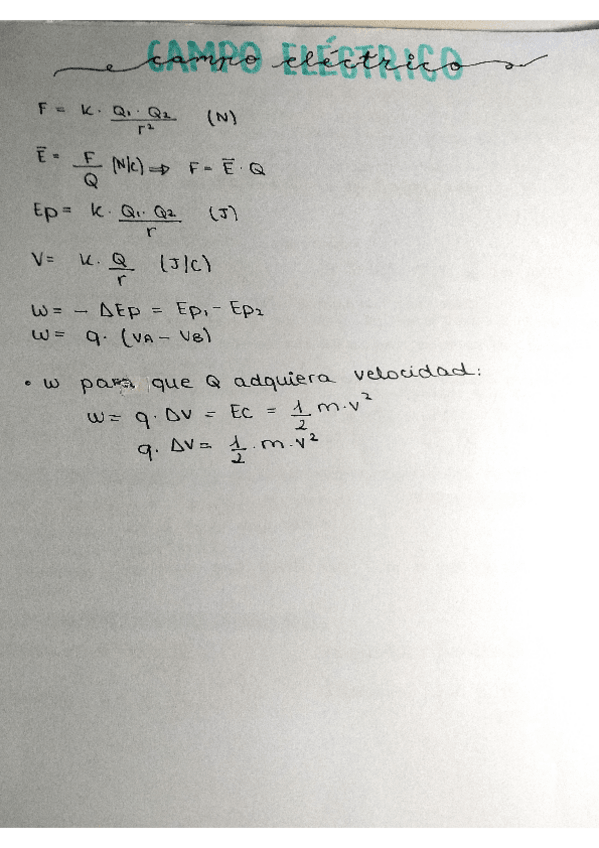 CAMPO ELÉCTRICO
campo eléctrico
F = K · Q₁ · Q₂ / r² (N)
E̅ = F / Q (N/C) ⇒ F = E̅ · Q
Ep = K · Q₁ · Q₂ / r (J)
V = K · Q / r (J/C)
W = - ΔEp = Ep₁ - Ep₂
W = q · (VA - VB)
• W para que Q adquiera velocidad:
W = q · ΔV = EC = 1/2 m · v²
q · ΔV = 1/2 · m · v²